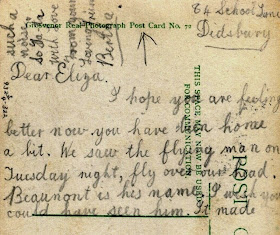 Grosvenor Real Photograph Post Card No. 72
64 School Lane
Didsbury
Dear Eliza.
I hope you are feeling
better now you have been home
a bit. We saw the flying man on
Tuesday night, fly over our head.
Beaumont is his name. I wish you
could have seen him. It made
such a
noise
So Ta
with love
from your
Loving
THIS SPACE MAY NOW BE USED
FOR COMMUNICATION
POST C